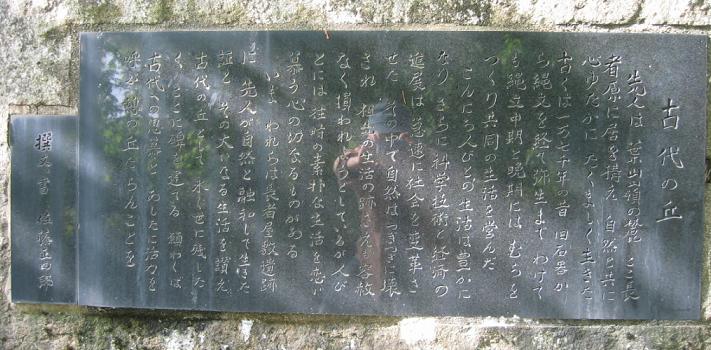 古代の丘
先人は 葉山嶺の麓 ここ長
者原に居を構え 自然と共に
心ゆたかに たくましく生きた
古くは一万七千年の昔 旧石器か
ら縄文を経て弥生まで わけて
も縄文中期と晩期には むらを
つくり共同の生活を営んだ
こんにち人びとの生活は豊かに
なり さらに科学技術と経済の
進展は 急速に社会を変革さ
せた その中で自然はつぎつぎに壊
され 祖先の生活の跡さえも容赦
なく損われようとしているが 人び
とには 往時の素朴な生活を恋い
慕う心の切なるものがある
いま われらは長者屋敷遺跡
に 先人が自然と融和して生きた
証と その大いなる生活を讃え
古代の丘として 永く世に残した
く ここに碑を建てる 願わくは
古代への思慕と あしたに活力を
呼ぶ魂の丘たらんことを
撰文・書 佐藤正四郎